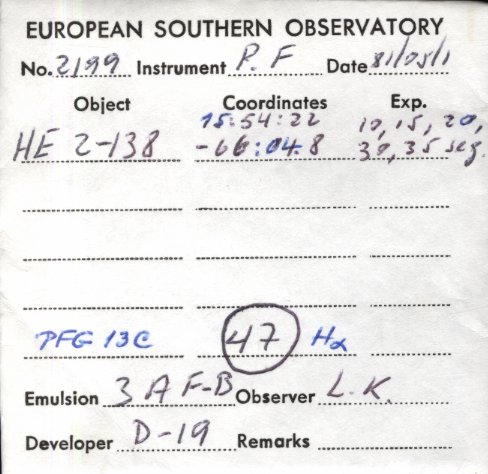 EUROPEAN SOUTHERN OBSERVATORY
No. 2199 Instrument P.F Date 81/05/1
Object Coordinates Exp.
15:54:22 10, 15, 20,
HE 2-138 -66:04.8 30, 35 seg.
PFG 13C 47 Hα
Emulsion 3 A F-B Observer L.K.
Developer D-19 Remarks